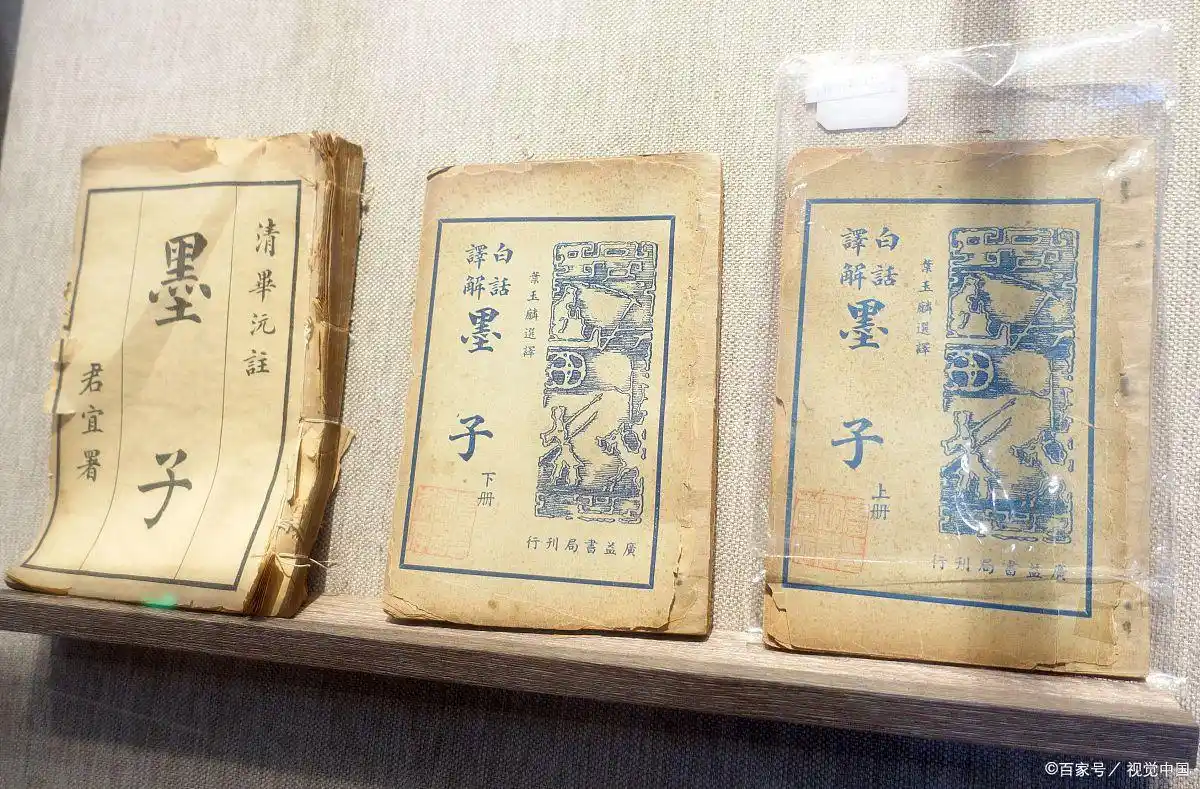 清畢沅註
墨子
君宜署
白話
譯解
墨子
下册
葉玉麟選譯
廣益書局刊行
白話
譯解
墨子
上册
葉玉麟選譯
廣益書局刊行
©百家号／视觉中国